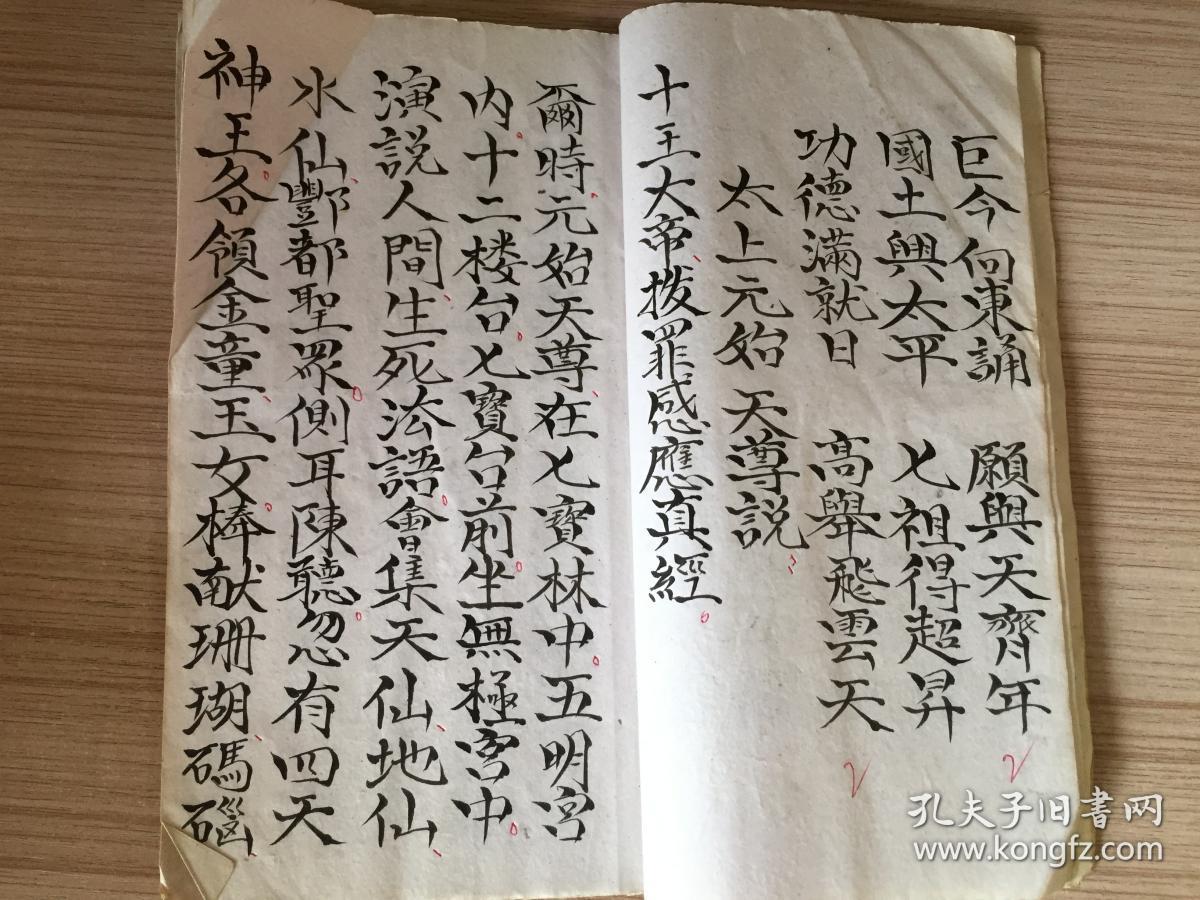 巨今向東誦　願與天齊年
國土興太平　七祖得超昇
功德滿就日　高舉飛雲天
太上元始天尊說
十王大帝拔罪感應真經
爾時元始天尊在七寶林中五明宮
內十二楼台七寶台前坐無極宮中
演説人間生死法語會集天仙地仙
水仙酆都聖眾側耳陳聽忽有四天
神王各領金童玉女棒献珊瑚碼碯
孔夫子旧书网
www.kongfz.com